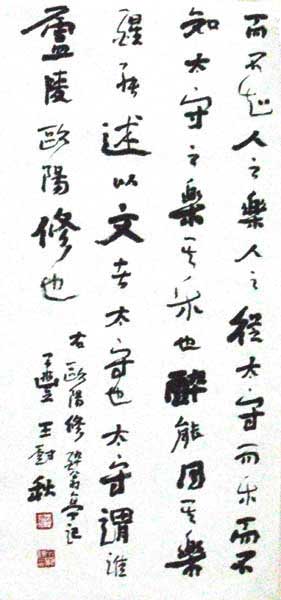 而不知人之樂人之從太守而乐而不
知太守之樂其乐也醉能同其樂
醒能述以文者太守也太守謂誰
廬陵歐陽修也
右歐陽修醉翁亭記
王秋